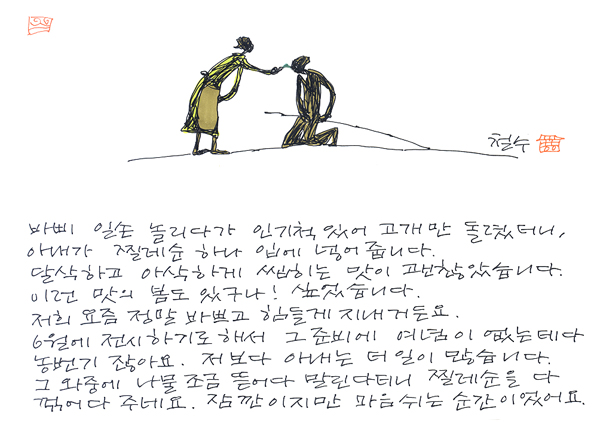 철수
바삐 일손 놀리다가 인기척 있어 고개만 돌렸더니,
아내가 찔레순 하나 입에 넣어 줍니다.
달삭하고 아삭하게 씹히는 맛이 괜찮았습니다.
이런 맛의 봄도 있구나! 싶었습니다.
저희 요즘 정말 바쁘고 힘들게 지내거든요.
6월에 전시하기로해서 그 준비에 여념이 없는데다
농번기 잖아요. 저보다 아내는 더 일이 많습니다.
그 와중에 나물 조금 뜯어다 말린다더니 찔레순을 다
꺾어다 주네요. 잠깐이지만 마음쉬는 순간이었어요.